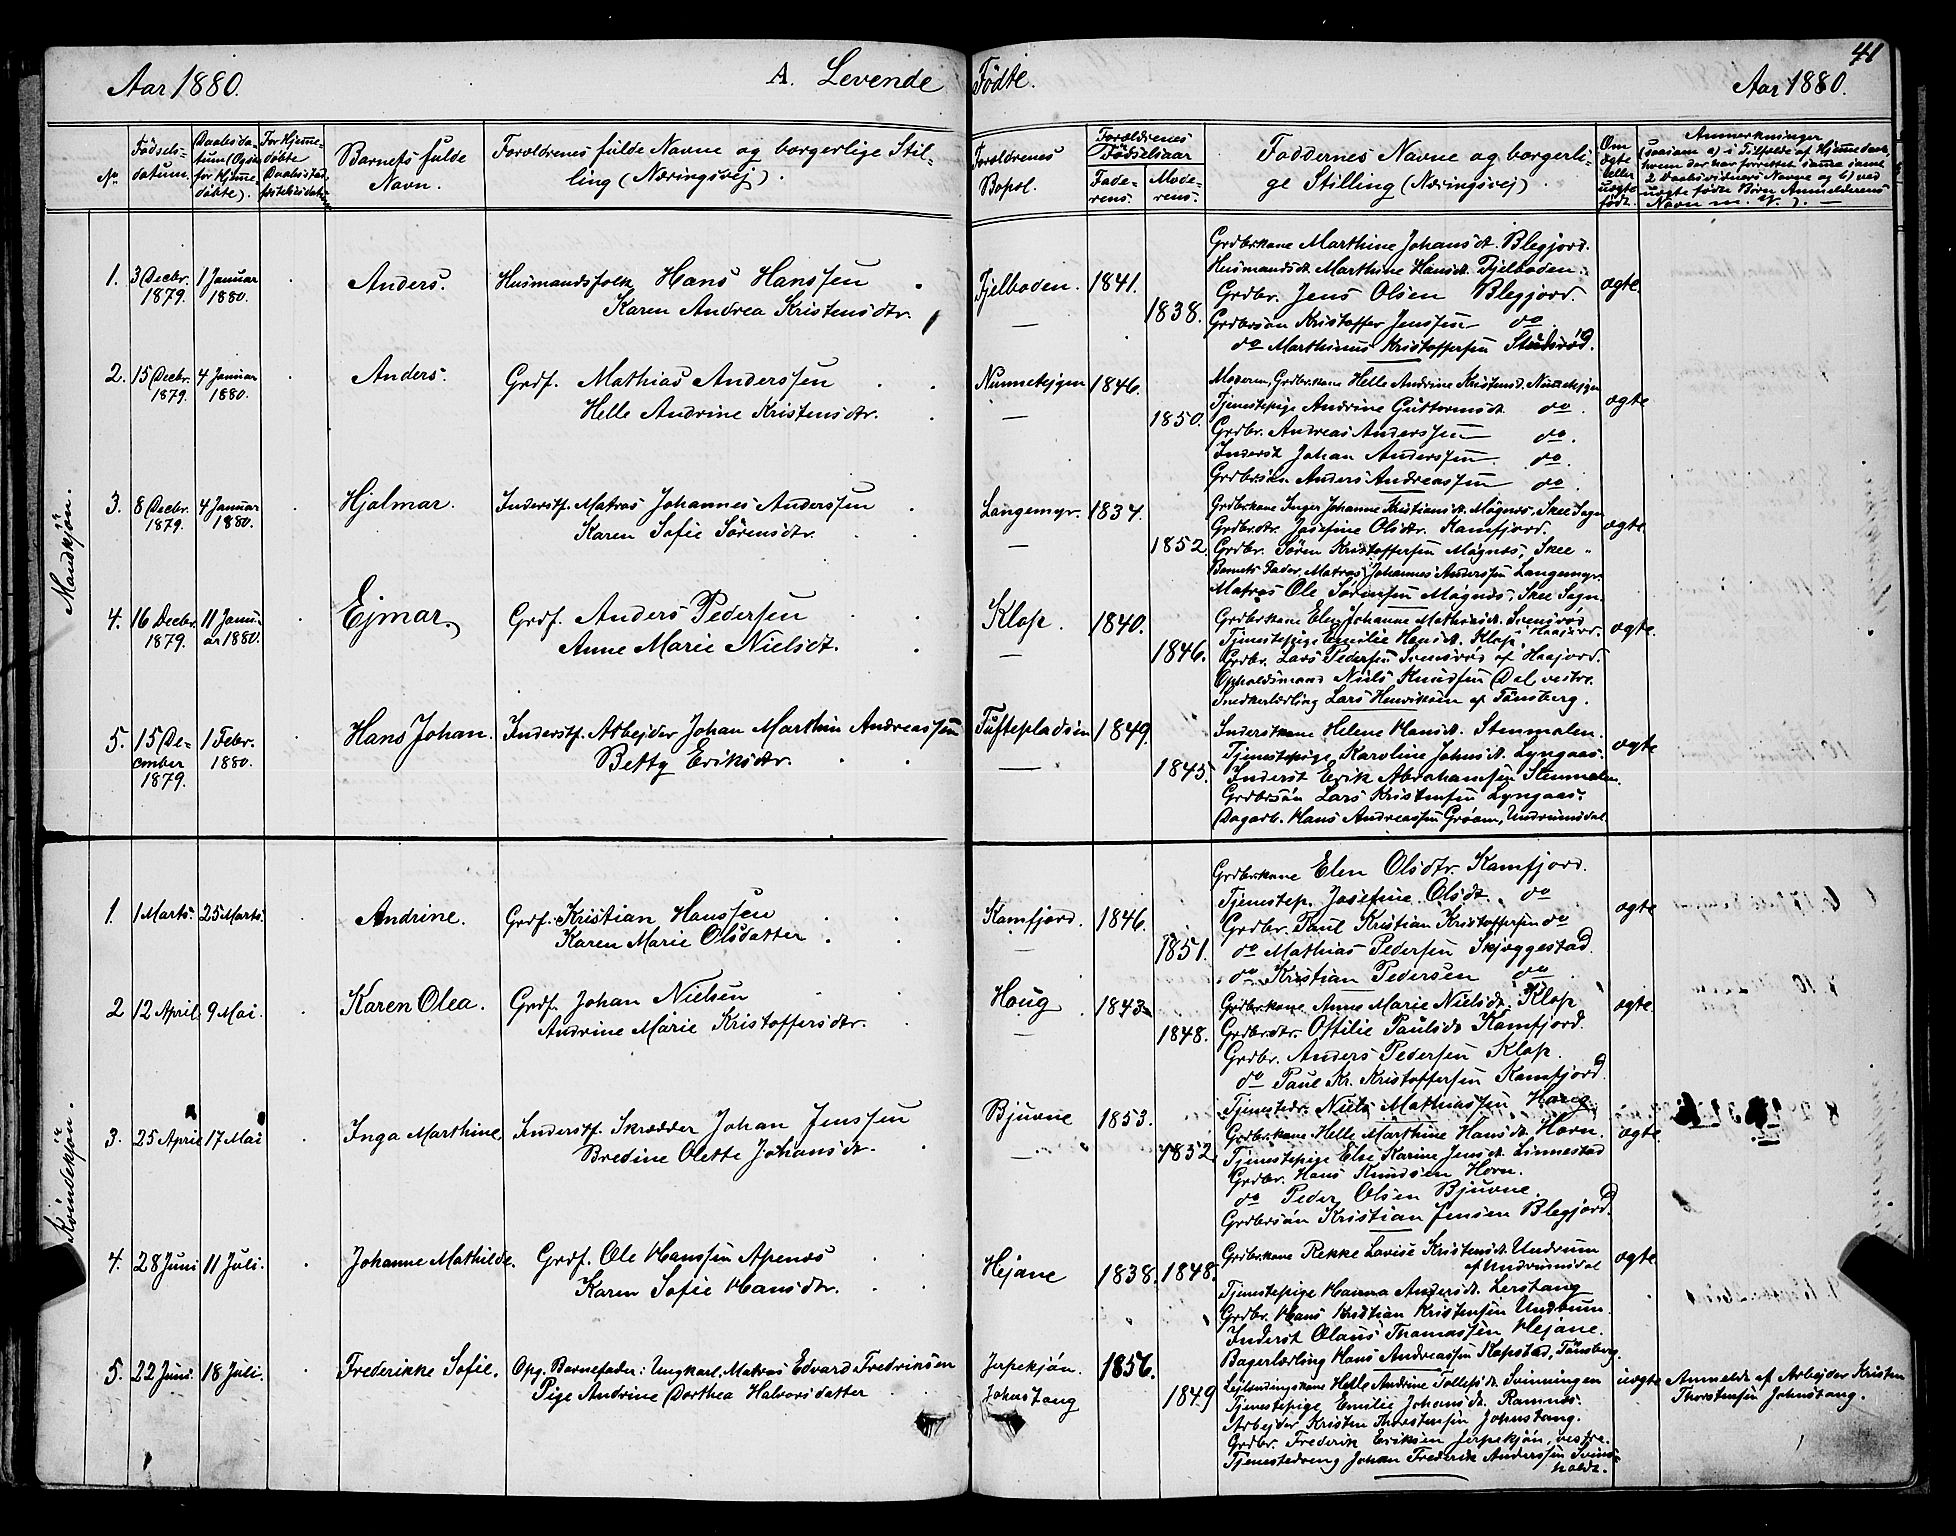 41
Aar 1880. A. Levende Fødte. Aar 1880.
No. Fødsels-datum. Daabsdatum (Ogsaa for Hjemmedøbte). For Hjemmedøbte Barnets fulde Navn. Forældrenes fulde Navne og borgerlige Stilling (Næringsvej). Forældrenes Bopæl. Forældrenes Fødselsaar Faderens. Moderens. Faddernes Navne og borgerlige Stilling (Næringsvej). Om ægte eller uægte født. Anmerkninger
Mandkjøn.
1. 3 Decbr. 1879. 1 Januar 1880. Anders. Husmandsfolk Hans Hanssen
Karen Andrea Kristensdtr.
Fjelboden. 1841. 1838. ægte.
Grdbr.kone Marthine Johansdt. Blegjord.
Husmandsdt. Marthine Hansdt. Fjelboden.
Grdbr. Jens Olsen Blegjord.
Grdbrsøn Kristoffer Jenssen do
do Marthinus Kristoffersen Studsrød.
2. 15 Decbr. 1879. 4 Januar 1880. Anders. Grdf. Mathias Anderssen
Helle Andrine Kristensdtr.
1846. 1850. ægte
Moderen, Grdbr.kone Helle Andrine Kristensd.
Tjenestepige Andrine Guttormsdt. do.
Grdbr. Andreas Anderssen do.
Inderst Johan Anderssen do.
Grdbrsøn Anders Andreassen do.
3. 8 Decbr. 1879. 4 Januar 1880. Hjalmar. Inderstf. Matros Johannes Anderssen
Karen Sofie Sørensdtr.
Langemyr. 1834. 1852. ægte
Grdbr.kone Inger Johanne Kristiansdt. Magnæs, Skee Sogn
Grdbr.dtr. Josefine Olsdtr. Kamfjord.
Grdbr. Søren Kristoffersen Magnæs, Skee "
Barnets Fader, Matros Johannes Anderssen Langemyr.
Matros Ole Sørensen Magnæs, Skee Sogn.
4. 16 Decbr. 1879. 11 Januar 1880. Ejmar. Grdf. Anders Pedersen
Anne Marie Nielsdt.
Klop. 1840. 1846. ægte.
Grdbr.kone Elen Johanne Mathisdt. Svensrød
Tjenestepige Emilie Hansdt. Klop. Haajord.
Grdbr. Lars Pedersen Svensrød af Haajord.
Opholdsmand Niels Knudsen Dal vestre.
Snedkerlærling Lars Henriksen af Tønsberg.
5. 15 December 1879. 1 Febr. 1880. Hans Johan. Inderstf. Arbejder Johan Marthin Andreassen
Betty Eriksdtr.
Tuftepladsen 1849. 1845. ægte
Inderstkone Helene Hansdt. Stenmalen.
Tjenestepige Karoline Johnsdt. Lyngaas.
Inderst Erik Abrahamsen Stenmalen.
Grdbrsøn Lars Kristensen Lyngaas.
Dagarb. Hans Andreassen Grøam, Undrumsdal
Kvindekjøn.
1. 1 Marts. 25 Marts. Andrine. Grdf. Kristian Hanssen
Karen Marie Olsdatter
Kamfjord. 1846. 1851. ægte
Grdbr.kone Elen Olsdtr. Kamfjord.
Tjenestep. Josefine Olsdt. do
Grdbr. Paul Kristian Kristoffersen do
do Mathias Pedersen Skjeggestad
do Kristian Pedersen do
2 12 April. 9 Mai. Karen Olea. Grdf. Johan Nielsen
Andrine Marie Kristoffersdtr.
Haug 1843. 1848. ægte.
Grdbr.kone Anne Marie Nielsdt. Klop
Grdbr.dtr. Ottilie Paulsdt. Kamfjord.
Grdbr. Anders Pedersen Klop.
do Paul Kr. Kristoffersen Kamfjord
Tjenestedr. Niels Mathiassen Haug.
3. 25 April 17 Mai Inga Marthine. Inderstf. Skrædder Johan Jenssen
Bredine Olette Johansdt.
Bjuvne 1853. 1852. ægte
Grdbr.kone Helle Marthine Hansdt. Horn.
Tjenestepige Else Karine Jensdt. Linnestad
Grdbr. Hans Knudsen Horn.
do Peder Olsen Bjuvne.
Grdbrsøn Kristian Jensen Blegjord.
4. 28 Juni 11 Juli. Johanne Mathilde. Grdf. Ole Hanssen Apenæs
Karen Sofie Hansdtr.
Hejane 1838. 1848. ægte
Grdbr.kone Rekke Lovise Kristensdt. Undrum
af Undrumsdal
Tjenestepige Hanna Andersdt. Lerstang
Grdbr. Hans Kristian Kristensen Undrum.
Inderst Olaus Thomassen Hejane.
Bagerlærling Hans Andreassen Kopstad, Tønsberg.
5. 22 Juni. 18 Juli. Frederikke Sofie. Opg. Barnefader: Ungkarl, Matros Edvard Fredriksen
Pige Andrine Dorthea Halvorsdatter
Jerpekjøn. Johnstang 1856. 1849 uægte
Lejlændingskone Helle Andrine Tollefsdt. Svinningen
Tjenestepige Emilie Johansdt. Ramnæs.
Arbejder Kristen Thorstensen Johnstang.
Grdbr. Frederik Eriksen Jerpekjøn, vestre.
Tjenestedreng Johan Frederik Anderssen
Anmeldt af Arbejder Kristen
Thorstensen Johnstang.